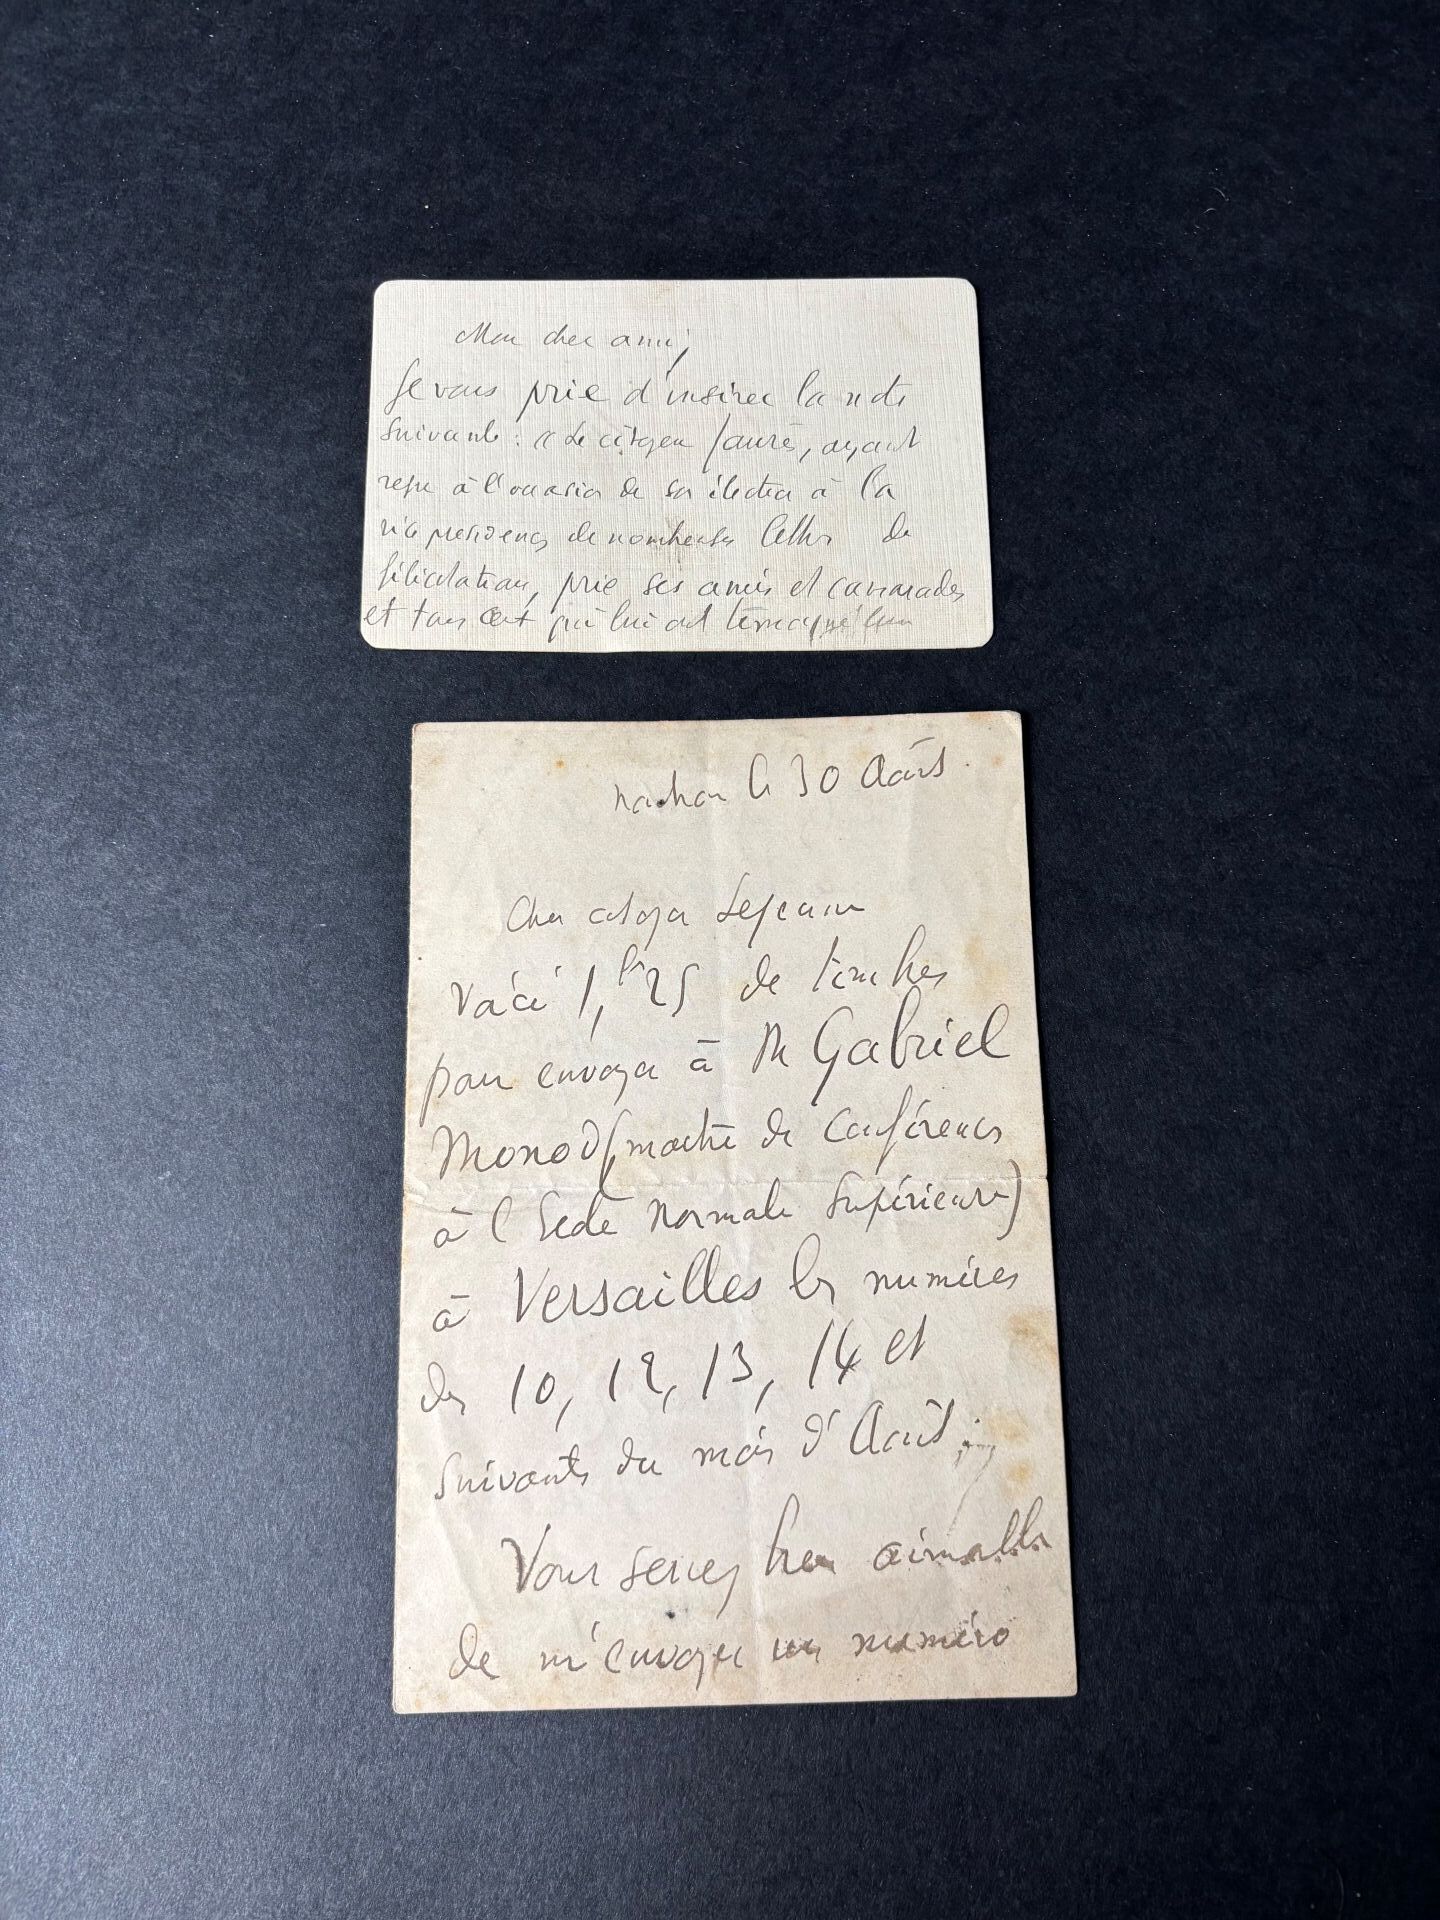 Mon cher ami,
Je vous prie d'insérer la note
suivante : « Le citoyen Jaurès, ayant
reçu à l'occasion de son élection à la
vice présidence de nombreuses lettres de
félicitations, prie ses amis et camarades
et tous ceux qui lui ont témoigné leur
le 30 Août.
Cher citoyen
Voici 1,fr25 de timbres
pour envoyer à M Gabriel
Monod (maître de Conférences
à l'Ecole Normale Supérieure)
à Versailles les numéros
des 10, 12, 13, 14 et
suivants du mois d'Août ;
Vous seriez bien aimable
de m'envoyer un numéro